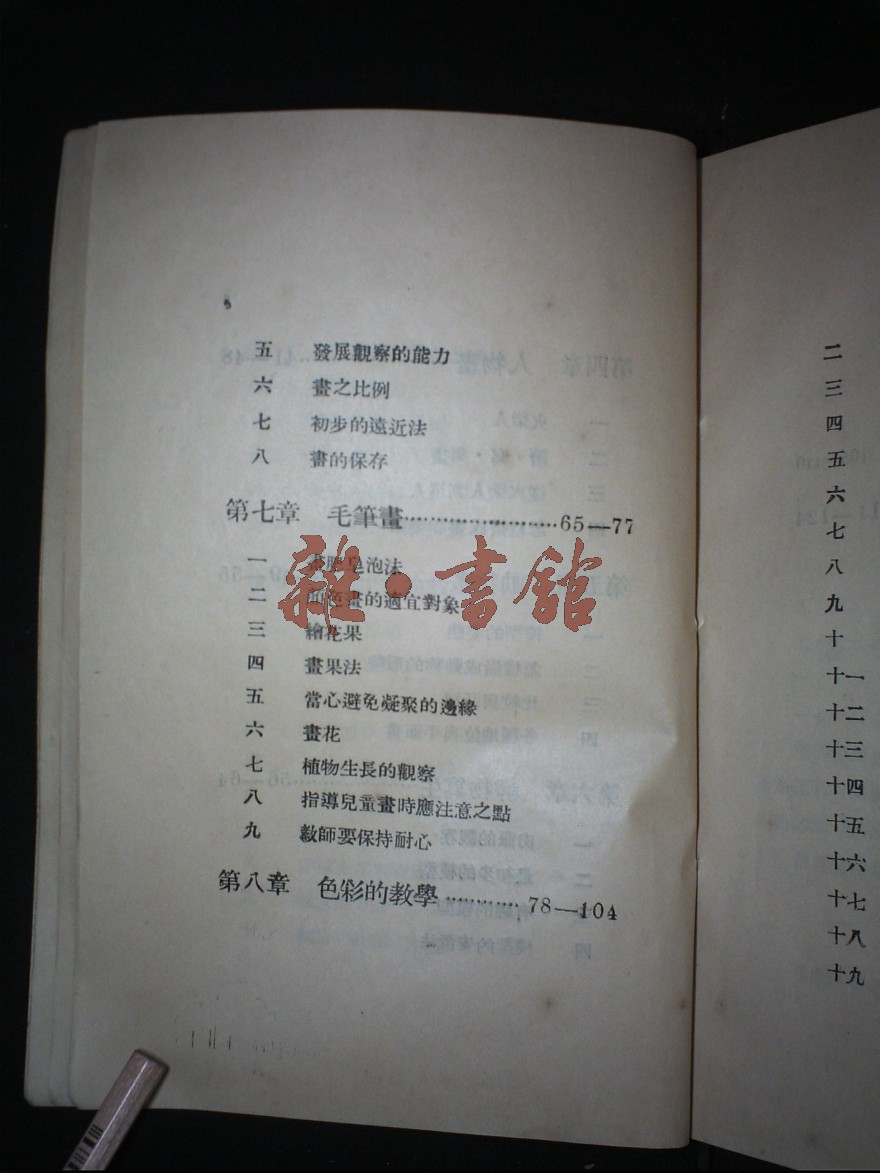 五 發展觀察的能力
六 畫之比例
七 初步的遠近法
八 畫的保存
第七章 毛筆畫……………………65—77
一 畫肥皂泡法
二 色畫的適宜對象
三 繪花果
四 畫果法
五 當心避免凝聚的邊緣
六 畫花
七 植物生長的觀察
八 指導兒童畫時應注意之點
九 教師要保持耐心
第八章 色彩的教學…………78—104
雜·書館
二
三
四
五
六
七
八
九
十
十一
十二
十三
十四
十五
十六
十七
十八
十九